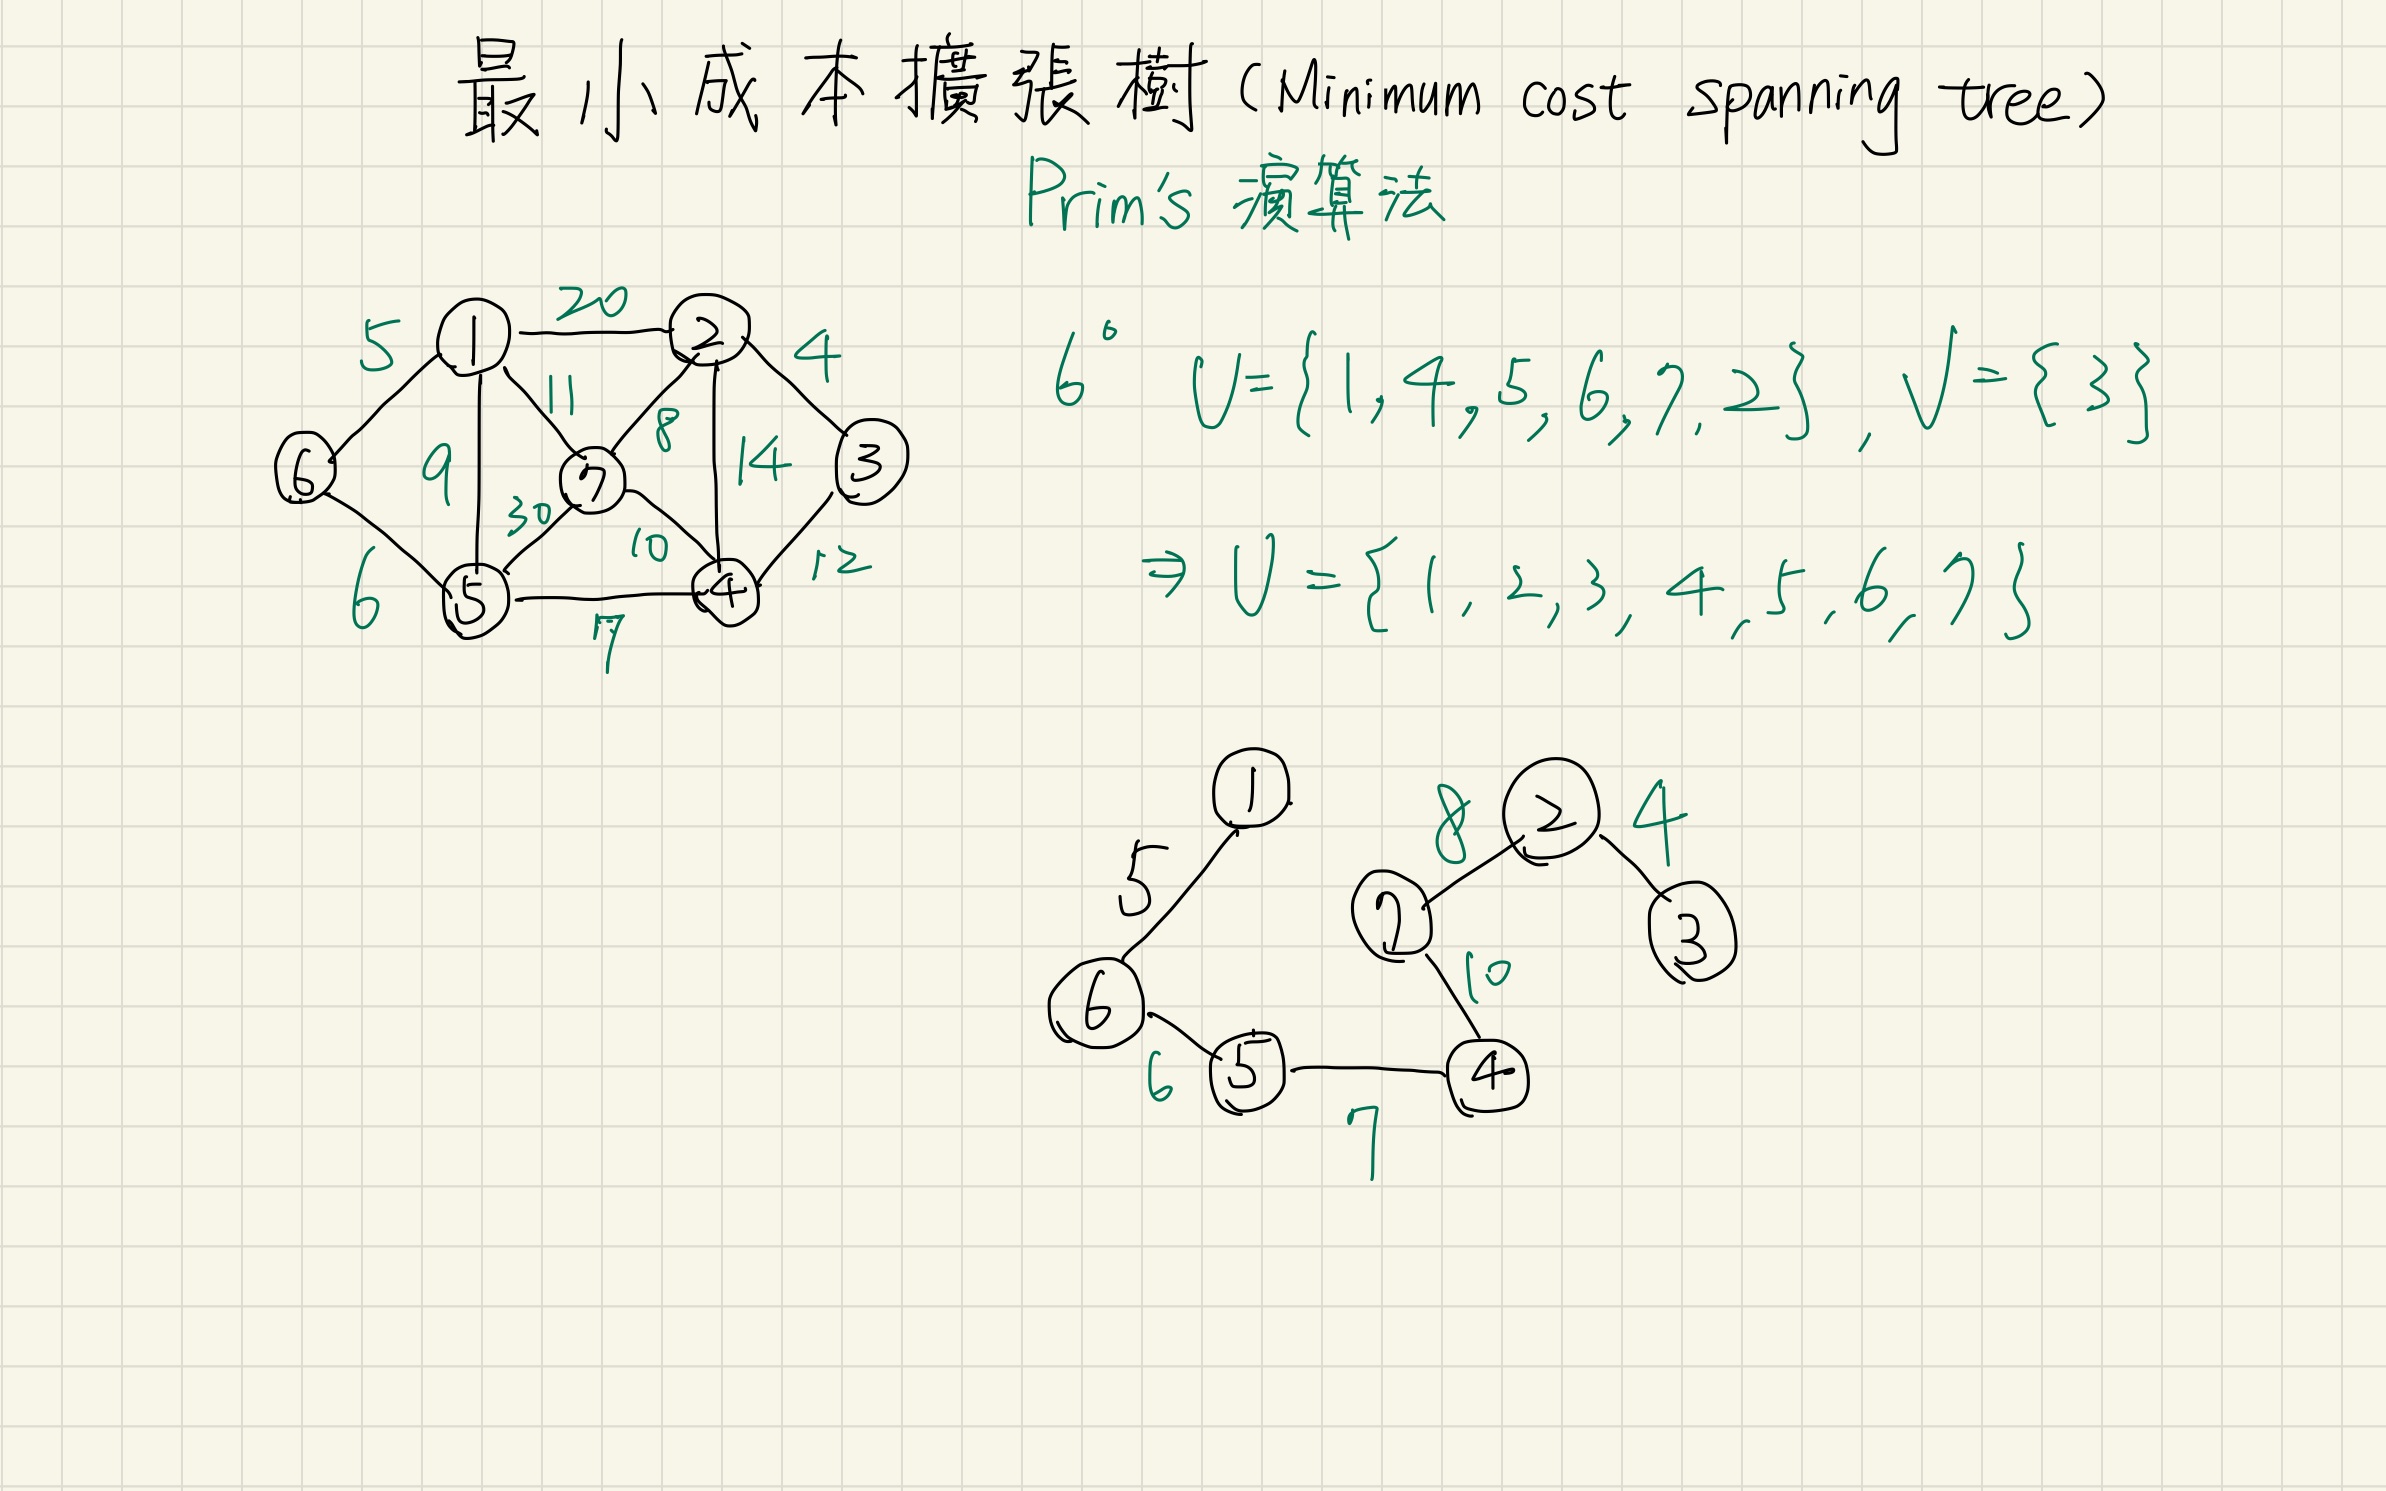 最小成本擴張樹(Minimum cost spanning tree)
Prim's 演算法
20
5 1 2 4
11
8
6 9 7 14 3
30
10 12
6 5 4
7
6° U={1,4,5,6,7,2}, V={3}
⇒ U={1,2,3,4,5,6,7}
1 8 2 4
5 7 3
6 10
6 5 4
7